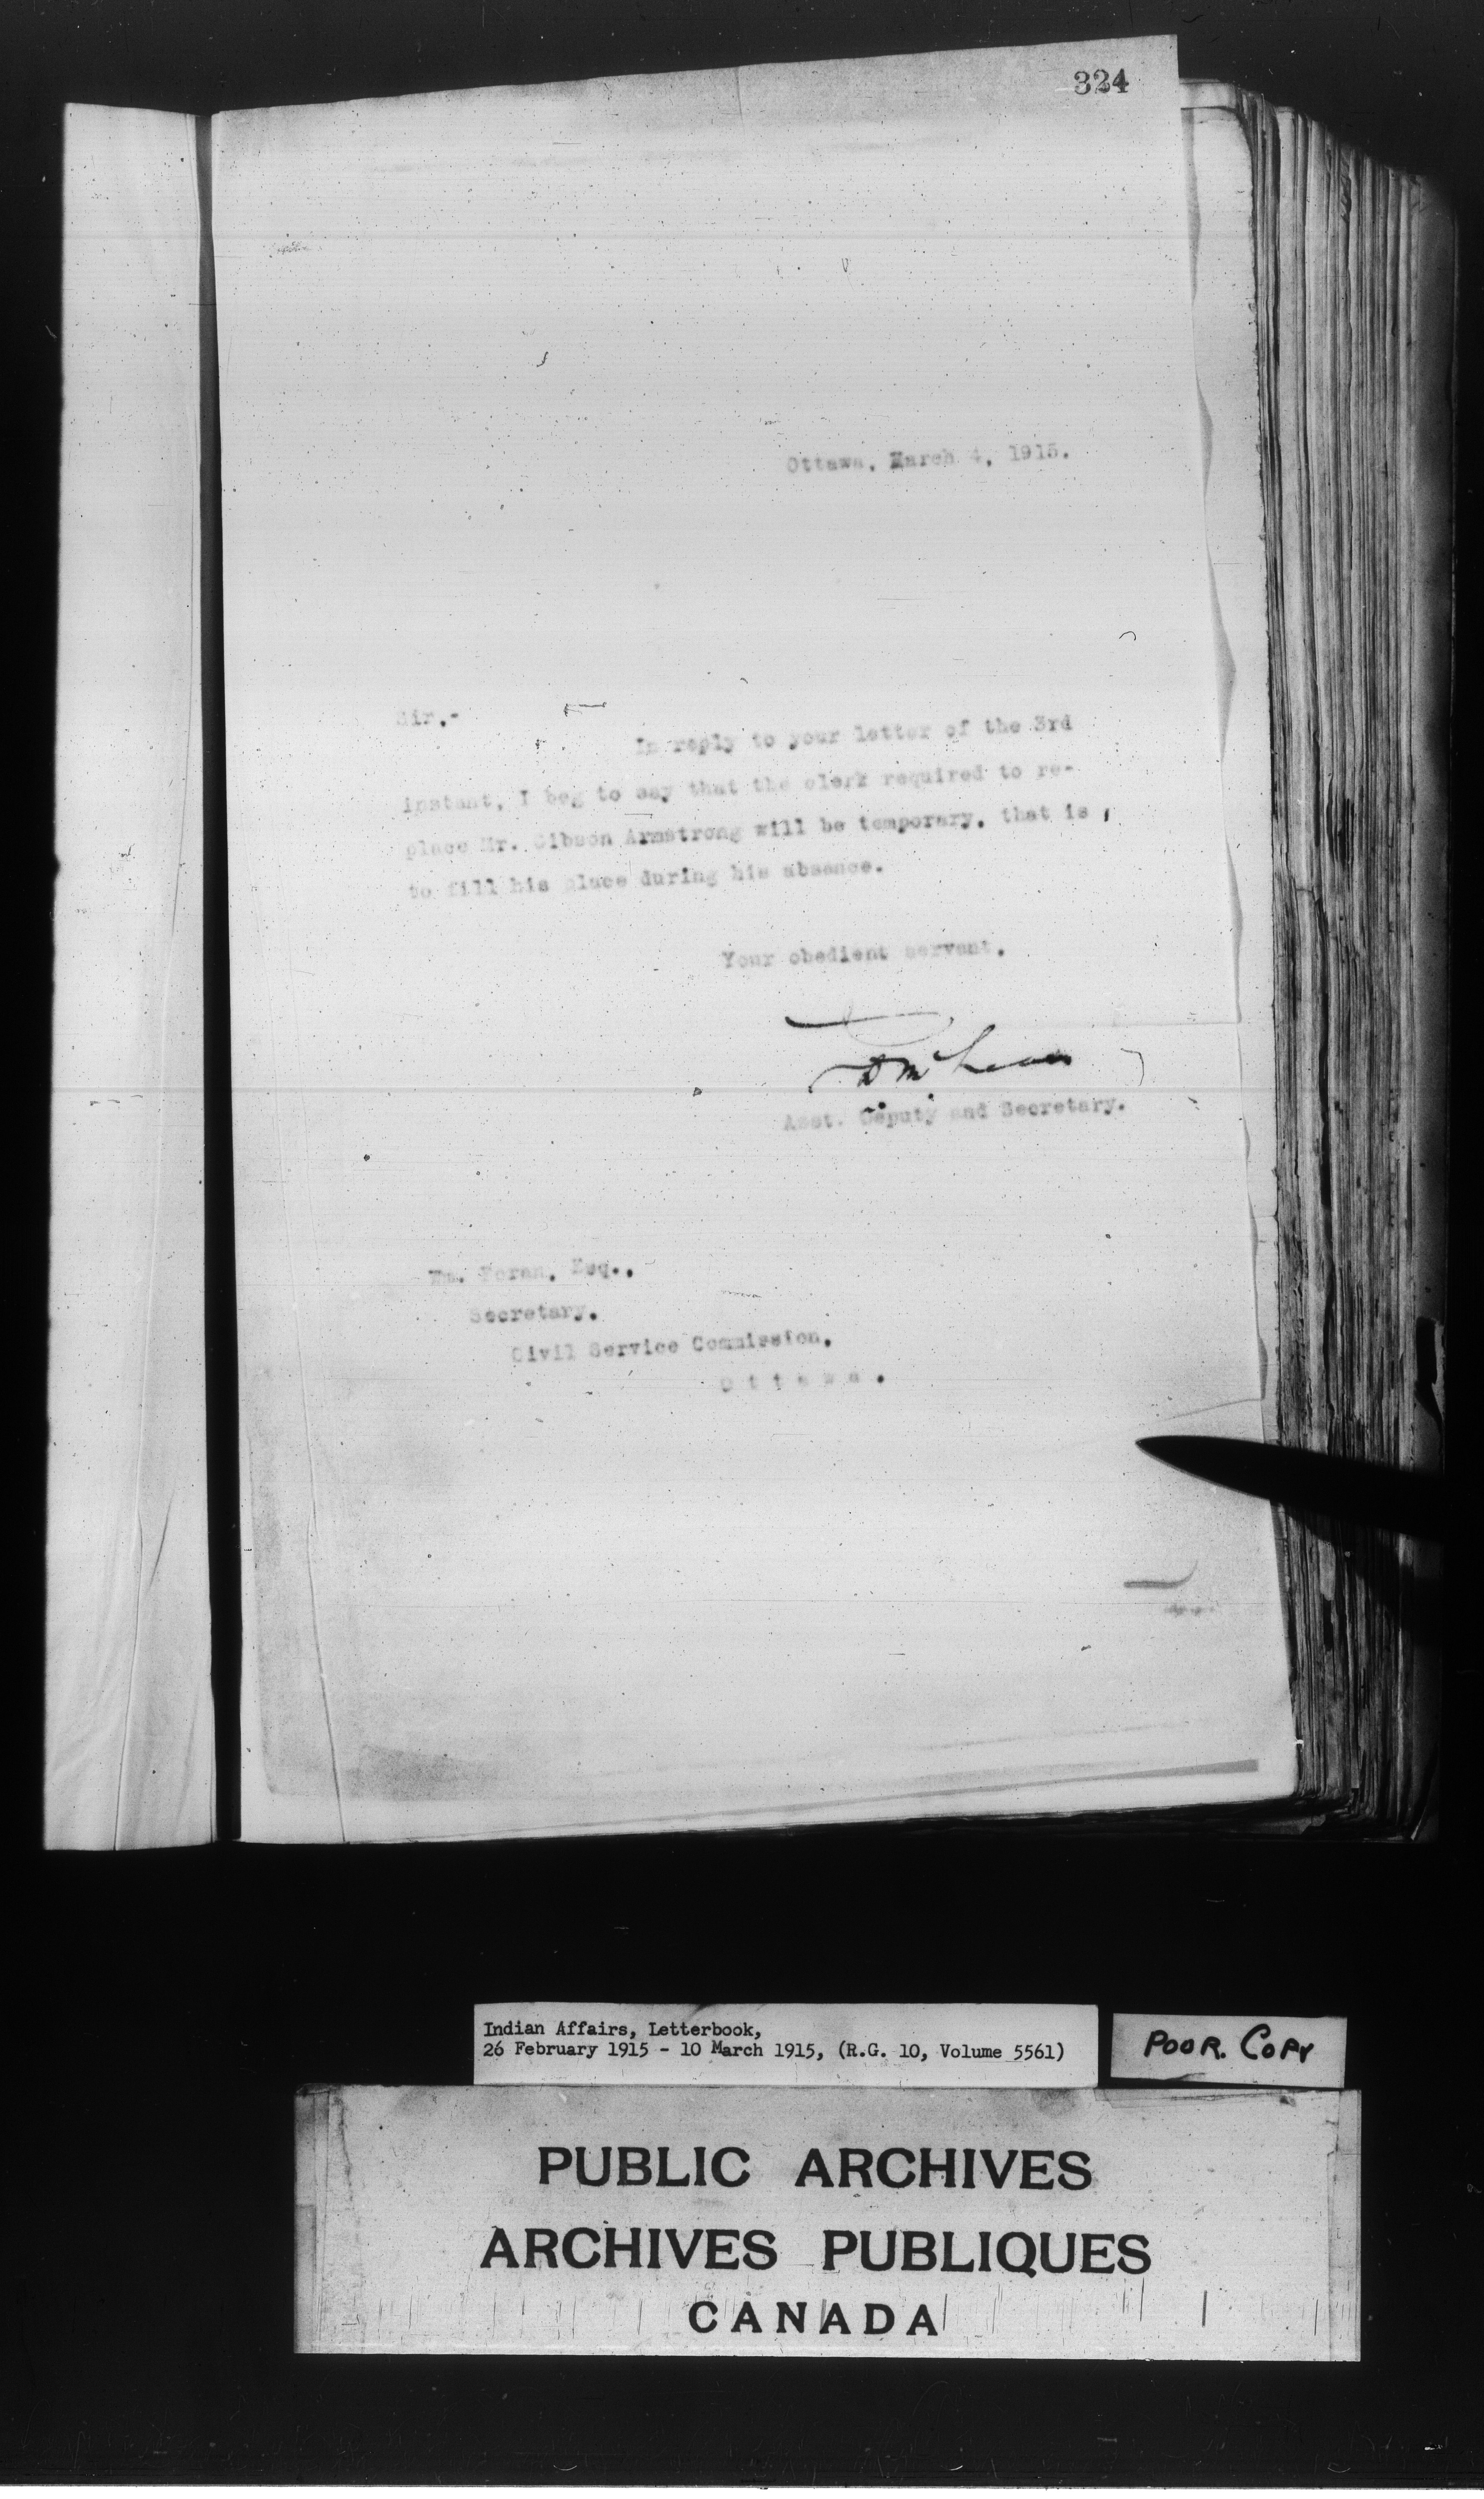 324
Ottawa, March 4, 1915.
Sir,-
In reply to your letter of the 3rd
instant, I beg to say that the clerk required to re-
place Mr. Gibson Armstrong will be temporary, that is,
to fill his place during his absence.
Your obedient servant,
Asst. Deputy and Secretary.
Wm. Foran, Esq.,
Secretary,
Civil Service Commission,
O t t a w a .
Indian Affairs, Letterbook,
26 February 1915 - 10 March 1915, (R.G. 10, Volume 5561)
POOR. COPY
PUBLIC ARCHIVES
ARCHIVES PUBLIQUES
CANADA